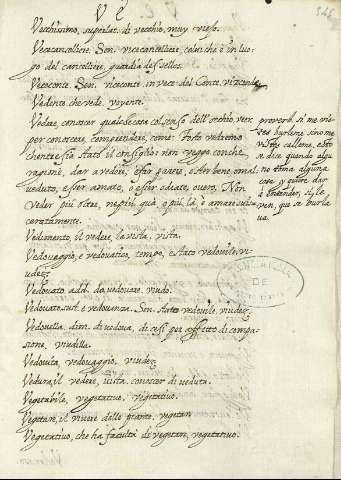 Ve
Vecchissimo, superlat. di vecchio, muy viejo.
Vicecancelliere. Sen. vicecancelliere, colui che è in luo-
go del cancelliere, guardia de sellos.
Vececonte. Sen. viceconte, in vece del Conte, vizconde
Vedente che vede, voyente.
Vedere, conoscer qualche cosa col senso dell'occhio, ver
per conoscere, comprendere, come: Tosto vedremo
chente sia stato il consiglio: non veggo con che
ragione, dar a vedere, esser parere, o ver bene, o mal
veduto, esser amato, o esser odiato, overo. Non
veder più oltre, nè più quà, o più là, è amare svisce-
ceratamente.
Vedimento, il vedere, la vista, vista.
Vedovaggio, e vedovatico, tempo, e stato vedovile, vi-
udez
Vedovato, add. da vedovare, viudo.
Vedovato, sust. e vedovanza. Sen. stato vedovile, viudez
Vedovella, dim. di vedova, dicesi per affetto di compas-
sione, viudilla.
Vedovità, vedovaggio, viudez
Vedura, il vedere, vista. conoscer di veduta.
Vegetabile, vegetativo, vegetativo.
Vegetare, il vivere delle piante, vegetar
Vegetativo, che ha facultà di vegetare, vegetativo.
proverb. si me vie-
tes burleme sino me
viste calleme, esto
se dice quando algu-
no toma alguna
cosa y quiere dar
à entender, si le
ven, que se burla-
va.
DE